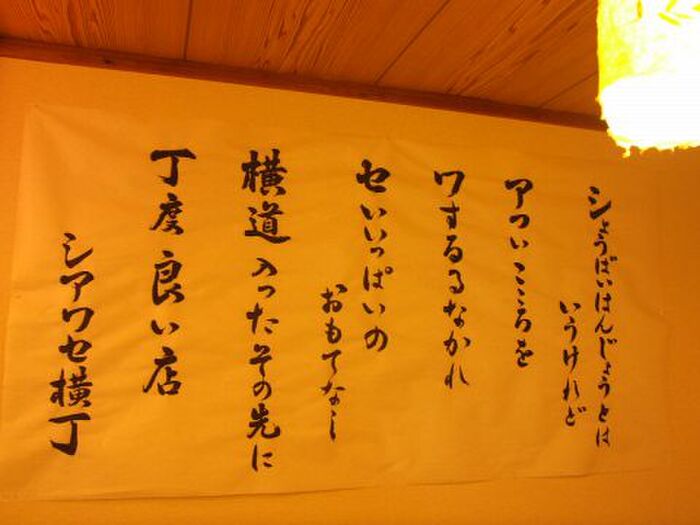 ショうばいはんじょうとは
いうけれど
アついこころを
ワするるなかれ
セいいっぱいの
おもてなし
横道入ったその先に
丁度良い店
シアワセ横丁